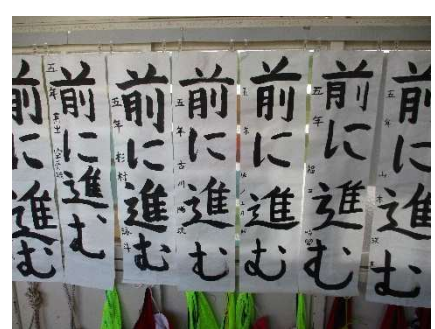 前に進む
五年 山本
前に進む
五年
前に進む
五年
前に進む
五年 古川
前に進む
五年 杉村
前に進む
五年
前に進む